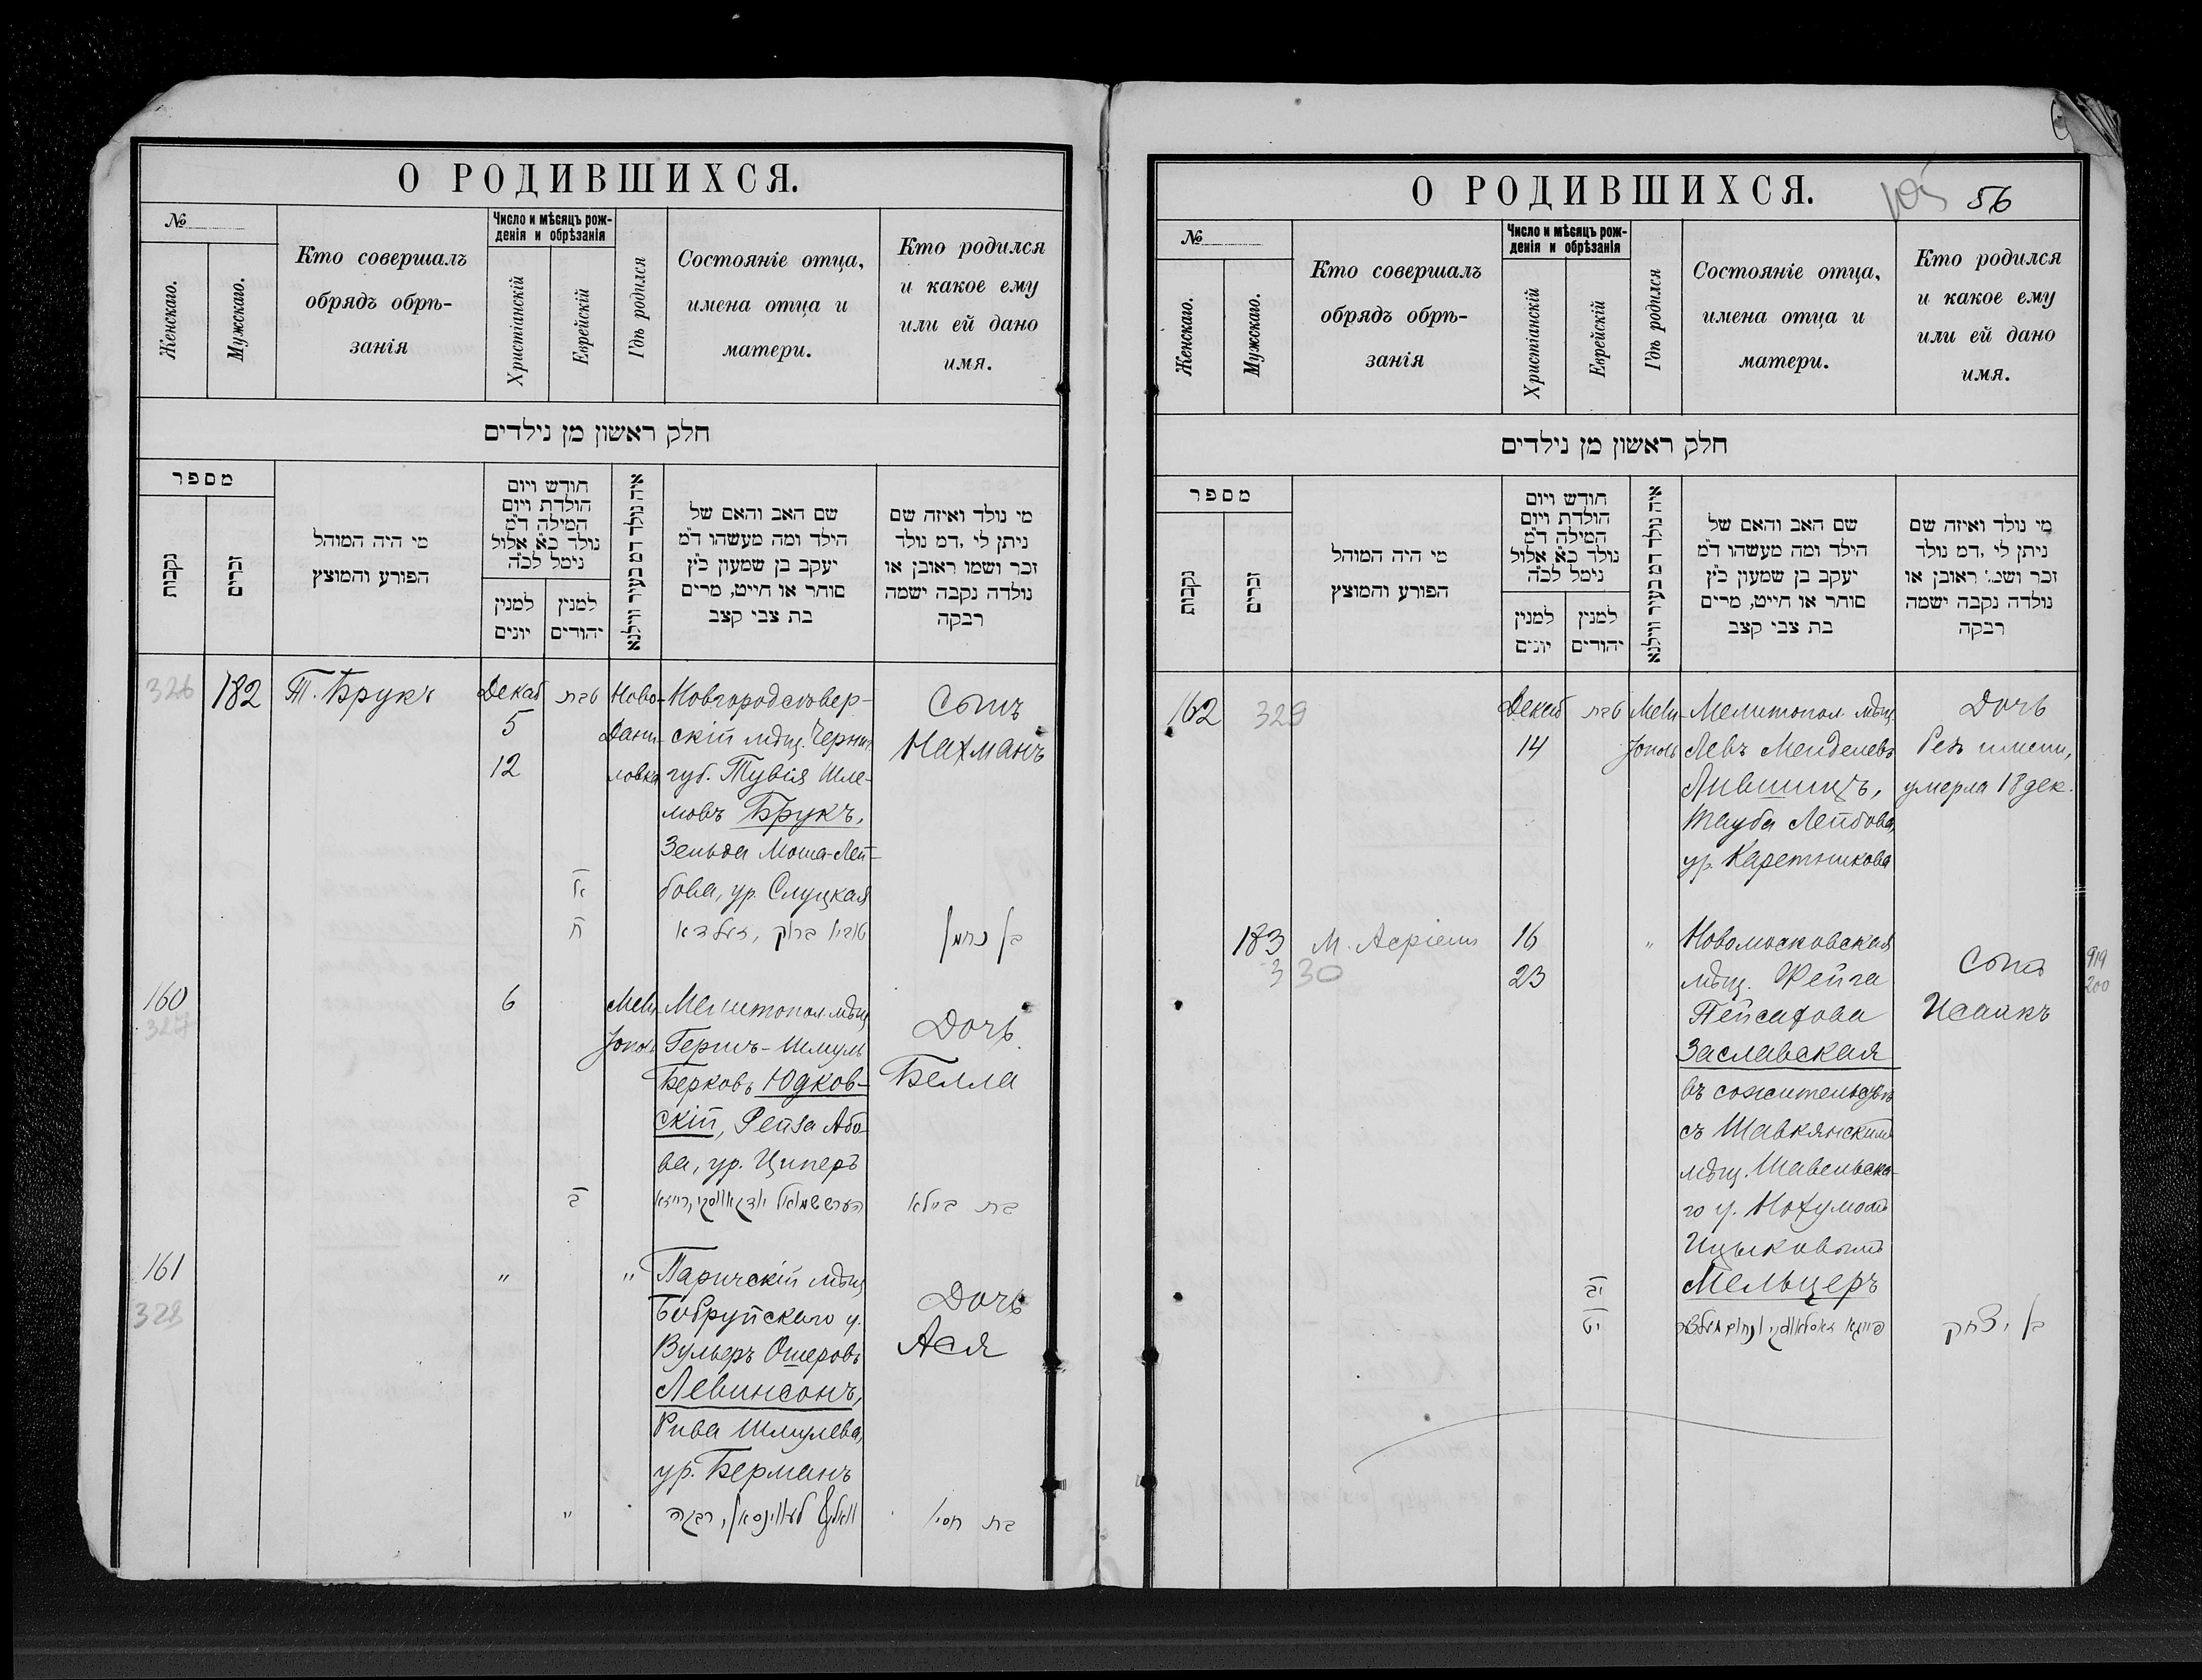 О РОДИВШИХСЯ.
№
Женскаго.
Мужскаго.
Кто совершалъ
обрядъ обрѣ-
занія
Число и мѣсяцъ рож-
денія и обрѣзанія
Христіанскій
Еврейскій
Гдѣ родился
Состояніе отца,
имена отца и
матери.
Кто родился
и какое ему
или ей дано
имя.
חלק ראשון מן נילדים
מספר
נקבות
זכרים
מי היה המוהל
הפורע והמוצץ
חודש ויום
הולדת ויום
המילה ד״מ
נולד כ״א אלול
נימל לכ״ה
למנין
יונים
למנין
יהודים
איה נולד דמ בעיר ווילנא
שם האב והאם של
הילד ומה מעשהו ד״מ
יעקב בן שמעון כ״ץ
סוחר או חייט, מרים
בת צבי קצב
מי נולד ואיזה שם
ניתן לי ,דמ נולד
זכר ושמו ראובן או
נולדה נקבה ישמה
רבקה
326
182
Т. Брукъ
Декаб
5
12
טבת
א
ח
Ново-
Дани-
ловка
Новгородсѣвер-
скій мѣщ. Черниг.
губ. Тувія Шле-
мовъ Брукъ,
Зельда Моша-Лей-
бова, ур. Слуцкая
טוביו ברוק, זעלדא
Сынъ
Нахманъ
בן נחמן
160
327
6
ב
Мели-
тополь
Мелитопол. мѣщ
Гершъ-Шмуль
Берковъ Юдков-
скій, Рейза Або-
ва, ур. Циперъ
Дочь
Белла
בת ביילא
161
328
"
"
"
Паричскій мѣщ
Бобруйскаго у.
Вульфъ Ошеровъ
Левинсонъ,
Рива Шмулева,
ур. Берманъ
Дочь
Ася
בת חסיו
О РОДИВШИХСЯ.
105
56
№
Женскаго.
Мужскаго.
Кто совершалъ
обрядъ обрѣ-
занія
Число и мѣсяцъ рож-
денія и обрѣзанія
Христіанскій
Еврейскій
Гдѣ родился
Состояніе отца,
имена отца и
матери.
Кто родился
и какое ему
или ей дано
имя.
חלק ראשון מן נילדים
מספר
נקבות
זכרים
מי היה המוהל
הפורע והמוצץ
חודש ויום
הולדת ויום
המילה ד״מ
נולד כ״א אלול
נימל לכ״ה
למנין
יונים
למנין
יהודים
איה נולד דמ בעיר ווילנא
שם האב והאם של
הילד ומה מעשהו ד״מ
יעקב בן שמעון כ״ץ
סוחר או חייט, מרים
בת צבי קצב
מי נולד ואיזה שם
ניתן לי ,דמ נולד
זכר ושמ׳ ראובן או
נולדה נקבה ישמה
רבקה
162
329
Декаб
14
טבת
Мели-
тополь
Мелитопол. мѣщ.
Левъ Менделевъ
Лившицъ,
Тауба Лейбова,
ур. Каретникова
Дочь
Безъ имени,
умерла 18 дек.
183
330
М. Асріель
16
23
יב
יט
"
Новомосковская
мѣщ. Фейга
Пейсахова
Заславская
въ сожительствѣ
съ Шавкянскимъ
мѣщ. Шавельска-
го у. Нохумомъ
Ицыковымъ
Мельцеръ
Сынъ
Исаакъ
בן יצחק
919
200